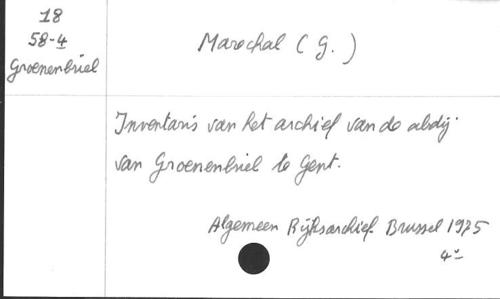 18
58-4
Groenenbriel
Marechal (G.)
Inventaris van het archief van de abdij
van Groenenbriel te Gent.
Algemeen Rijksarchief. Brussel 1975
4°